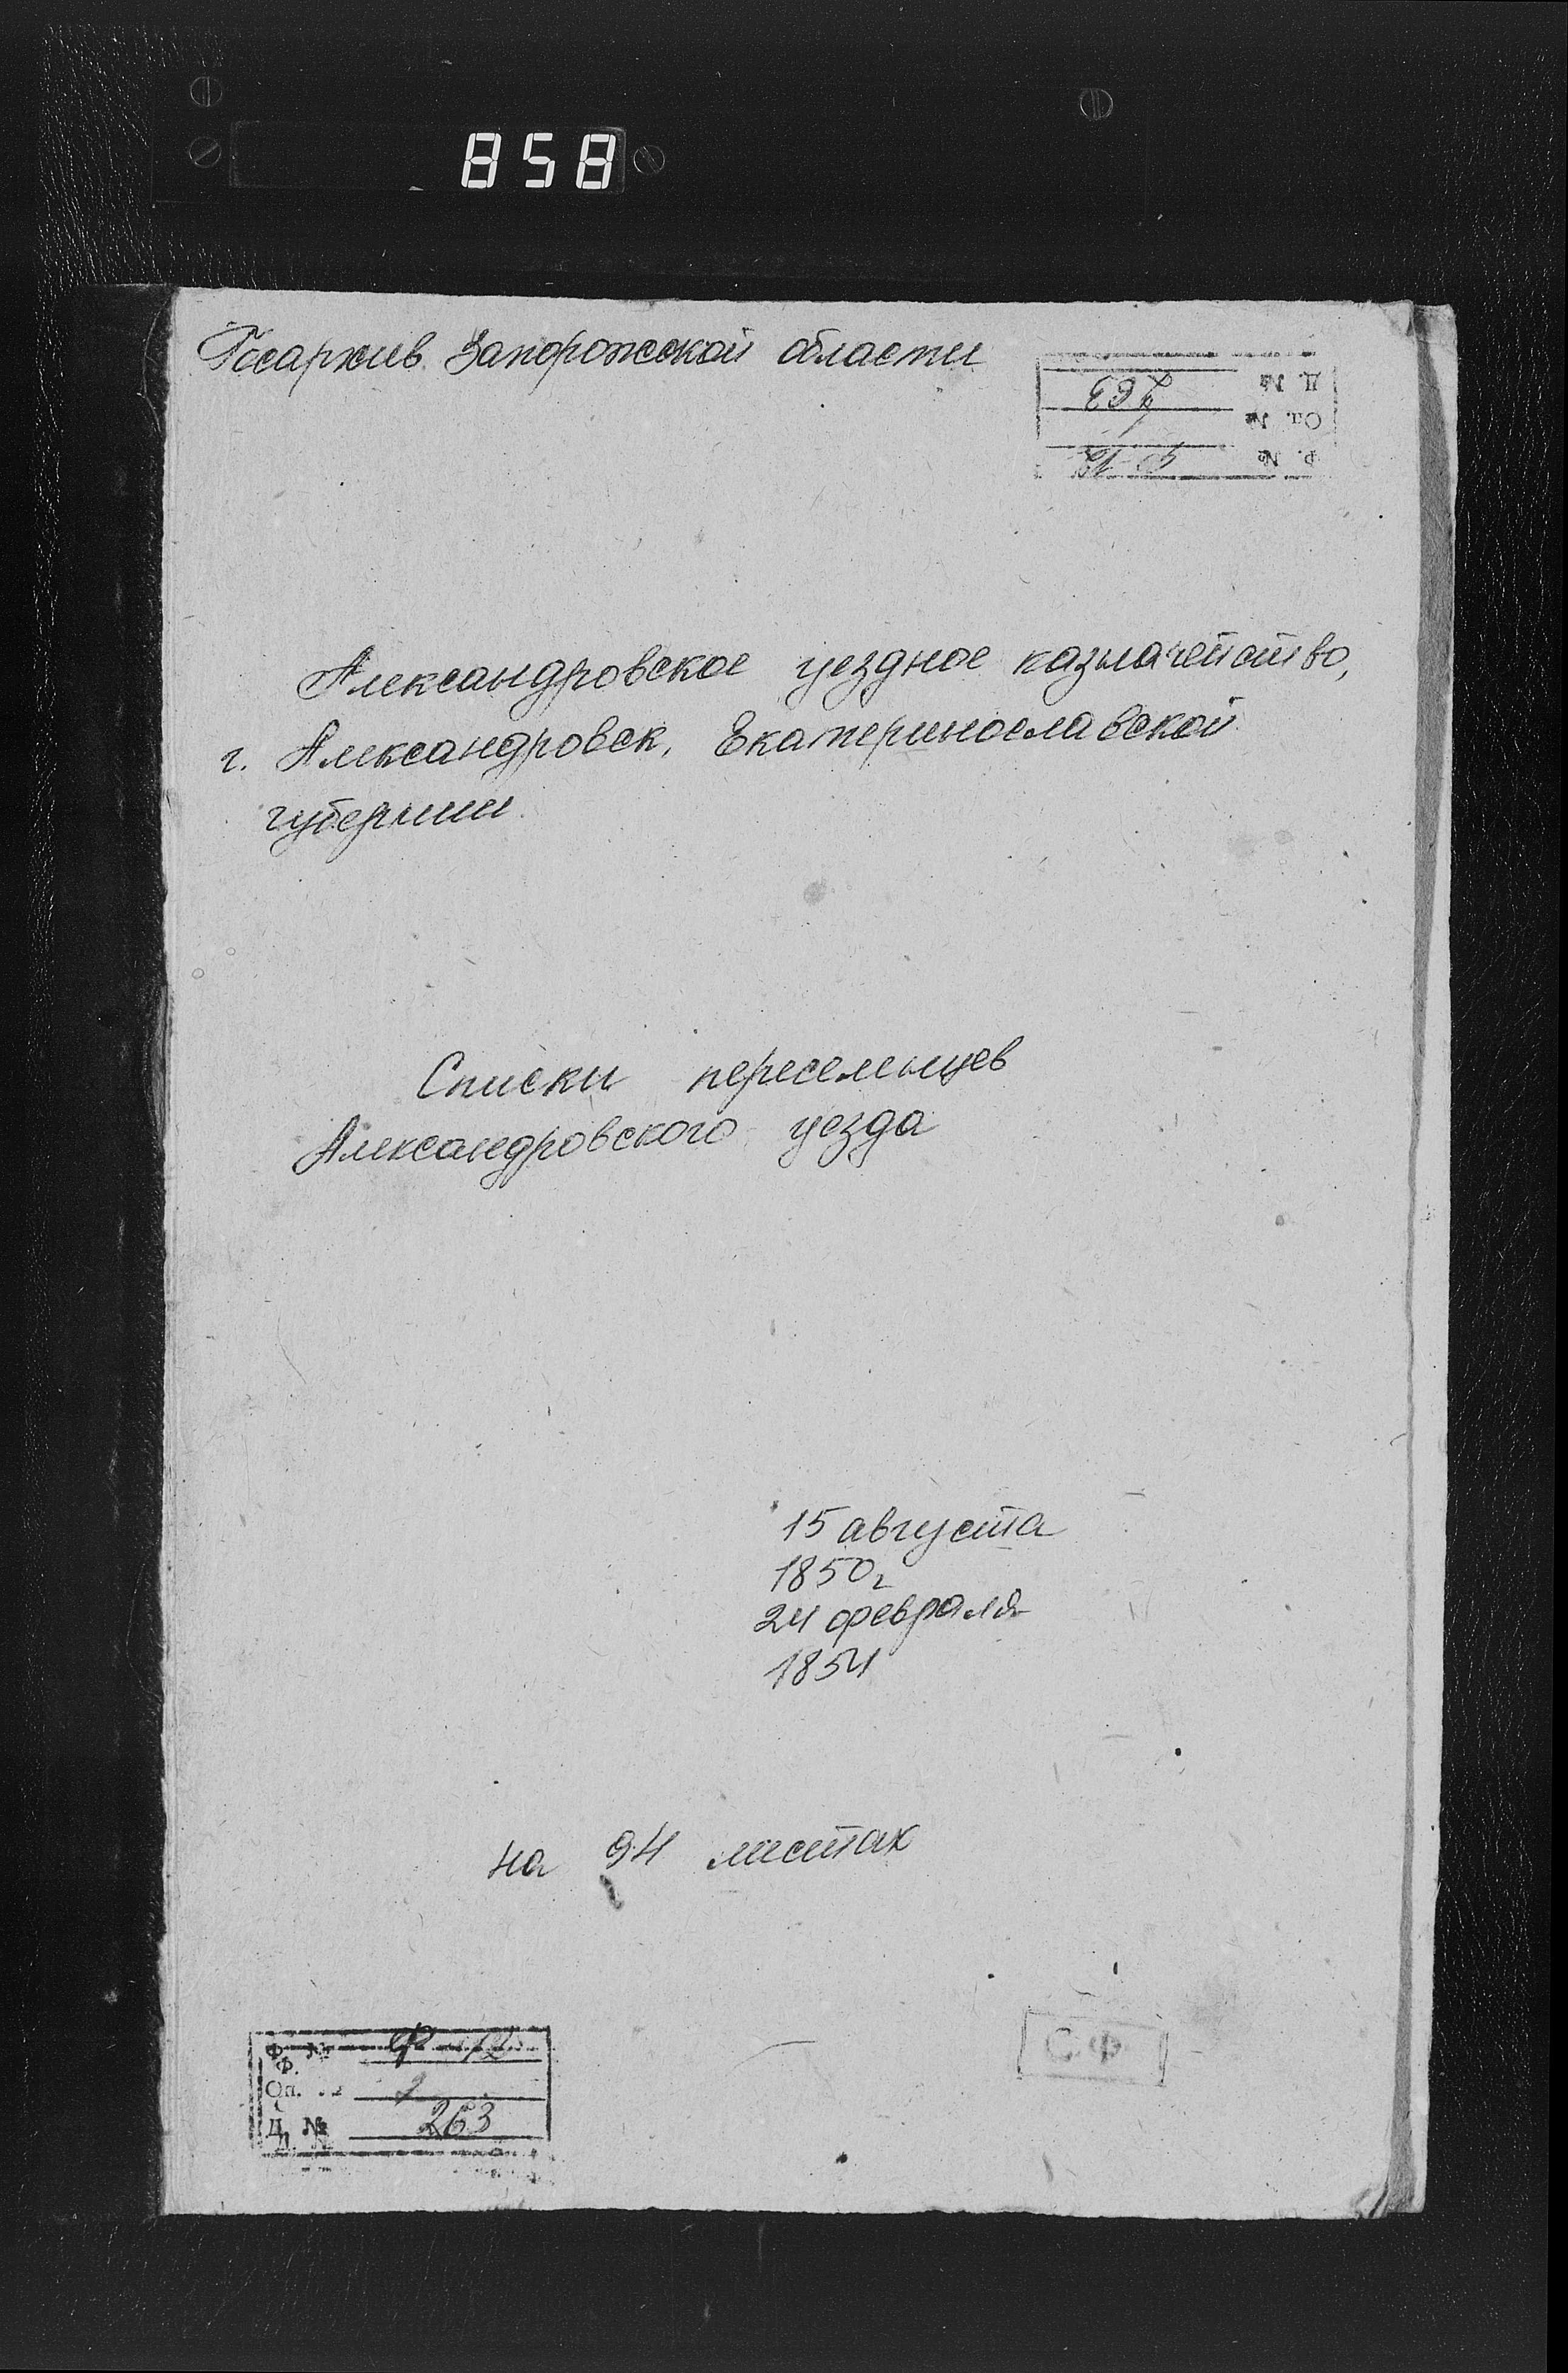 858
Госархив Запорожской области
Д. № 263
Оп. № 1
Ф. № Ф-12
Александровское уездное казначейство,
г. Александровск, Екатеринославской
губернии.
Списки переселенцев
Александровского уезда
15 августа
1850г
24 февраля
1854
на 94 листах
Ф. № Ф-12
Оп. №
Д. № 263
СФ